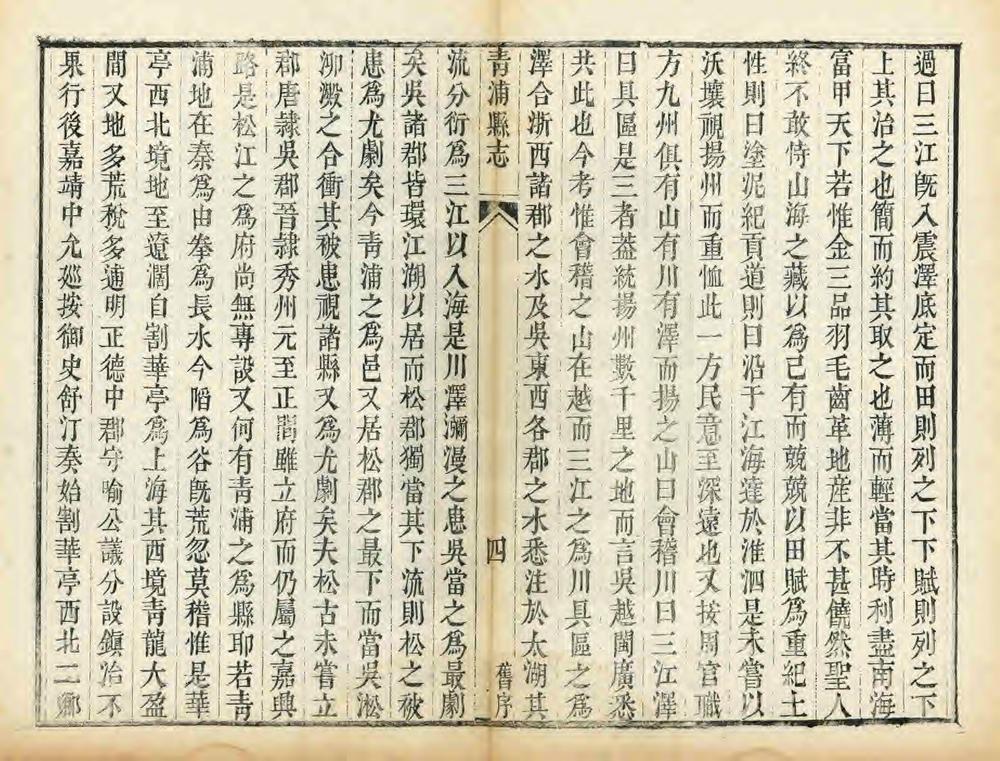 過曰三江旣入震澤底定而田則列之下下賦則列之下
上其治之也簡而約其取之也薄而輕當其時利盡南海
富甲天下若惟金三品羽毛齒革地産非不甚饒然聖人
終不敢恃山海之藏以爲己有而兢兢以田賦爲重紀土
性則曰塗泥紀貢道則曰沿于江海達於淮泗是未嘗以
沃壤視揚州而重恤此一方民意至深遠也又按周官職
方九州俱有山有川有澤而揚之山曰會稽川曰三江澤
曰具區是三者葢統揚州數千里之地而言吳越閩廣悉
共此也今考惟會稽之山在越而三江之爲川具區之爲
澤合浙西諸郡之水及吳東西各郡之水悉注於太湖其
青浦縣志
四
舊序
流分衍爲三江以入海是川澤瀰漫之患吳當之爲最劇
矣吳諸郡皆環江湖以居而松郡獨當其下流則松之被
患爲尤劇矣今青浦之爲邑又居松郡之最下而當吳淞
泖澱之合衝其被患視諸縣又爲尤劇矣夫松古未嘗立
郡唐隷吳郡晉隷秀州元至正間雖立府而仍屬之嘉興
路是松江之爲府尚無專設又何有青浦之爲縣耶若青
浦地在秦爲由拳爲長水今陷爲谷旣荒忽莫稽惟是華
亭西北境地至遼濶自割華亭爲上海其西境靑龍大盈
間又地多荒稅多逋明正德中郡守喻公議分設鎭治不
果行後嘉靖中允廵按御史舒汀奏始割華亭西北二鄉